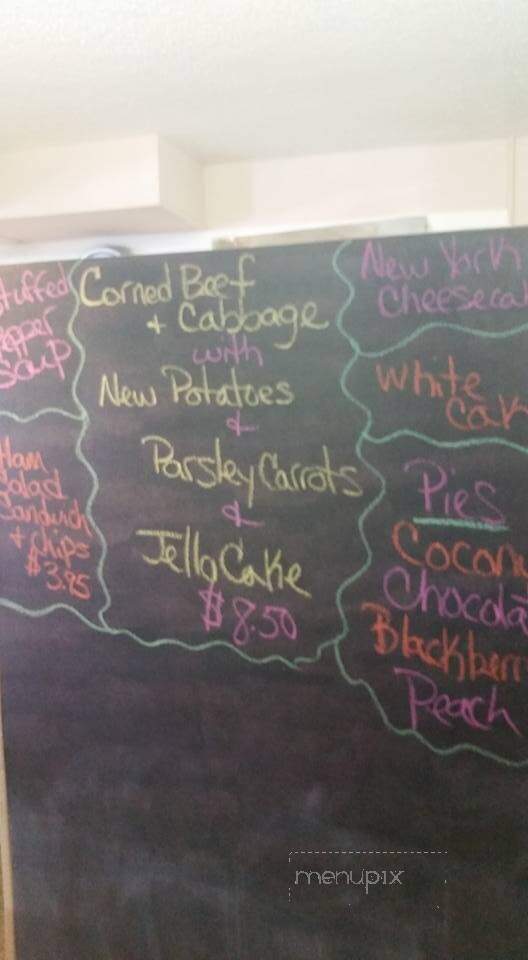 tuffed
epper
Soup
Ham
Salad
Sandwich
+ Chips
$3.95
Corned Beef
+ Cabbage
with
New Potatoes
&
Parsley Carrots
&
Jello Cake
$8.50
New York
Cheeseca
White
Cak
Pies
Cocon
Chocola
Blackberr
Peach
menupix